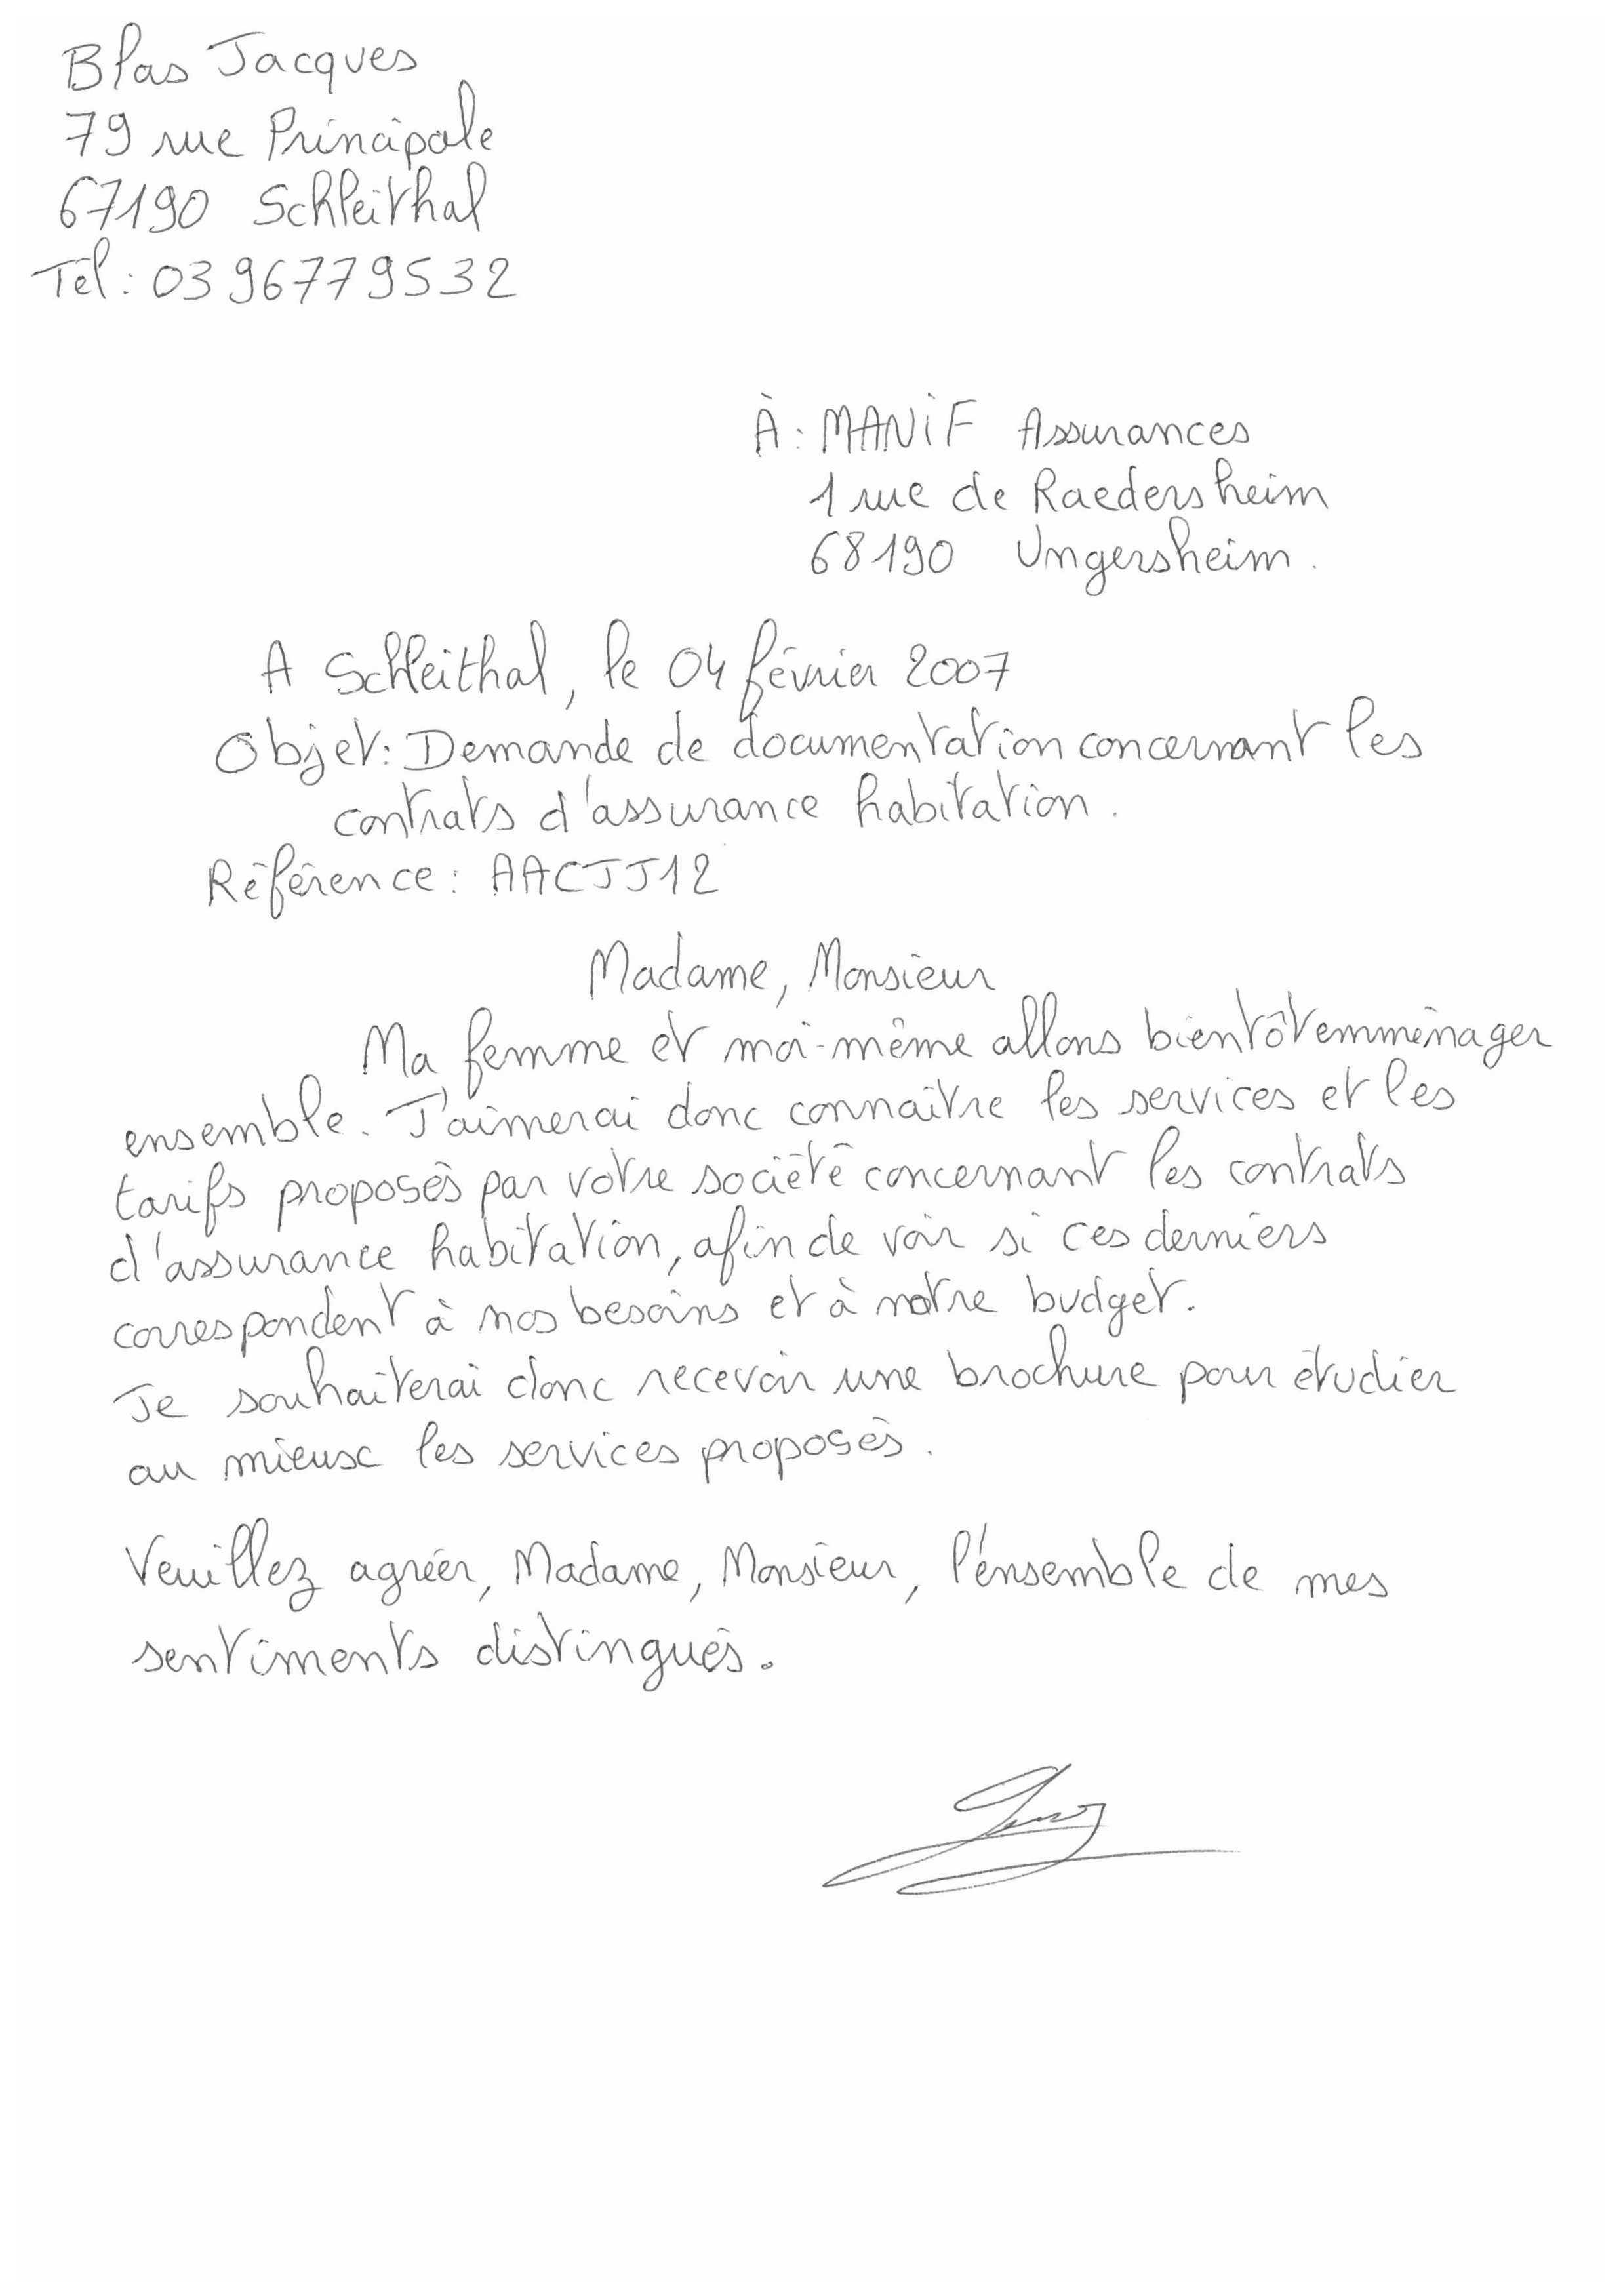 Blas Jacques
79 rue Principale
67190 Schleithal
Tél : 03 96779532
À : MANiF Assurances
1 rue de Raedersheim
68190 Ungersheim.
A Schleithal, le 04 février 2007
Objet: Demande de documentation concernant les
contrats d'assurance habitation.
Référence : AACJJ12
Madame, Monsieur
Ma femme et moi-même allons bientôt emménager
ensemble. J'aimerai donc connaître les services et les
tarifs proposés par votre société concernant les contrats
d'assurance habitation, afin de voir si ces derniers
correspondent à nos besoins et à notre budget.
Je souhaiterai donc recevoir une brochure pour étudier
au mieux les services proposés.
Veuillez agréer, Madame, Monsieur, l'ensemble de mes
sentiments distingués.